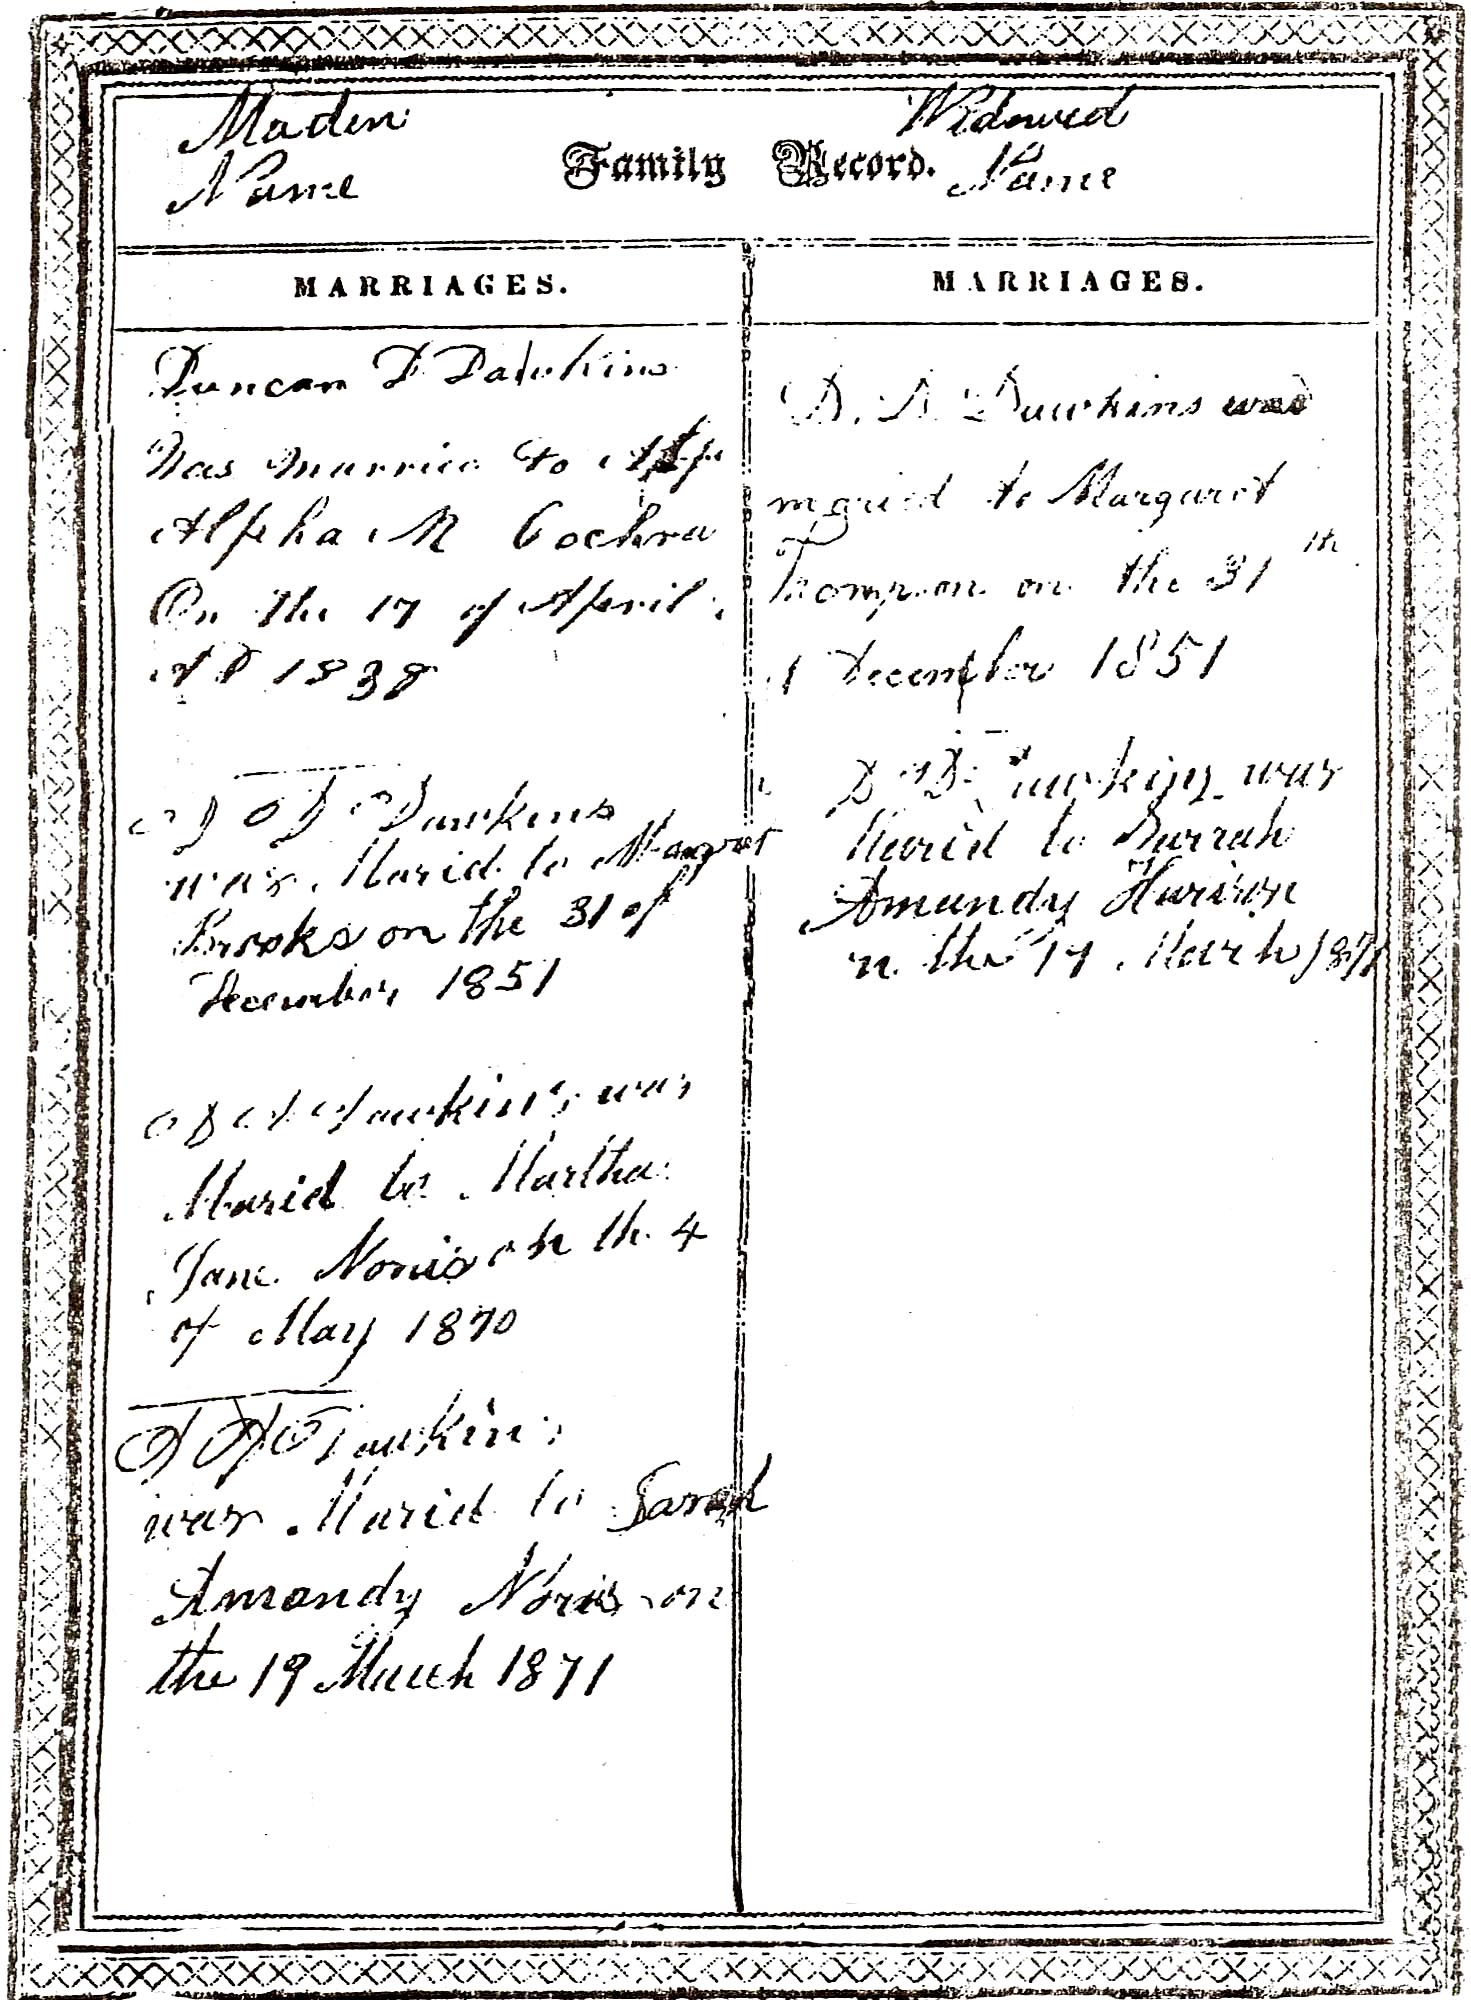 Maden
Name
Family Record.
Widowed
Name
MARRIAGES.
Duncan D Dawkins
Was married to Alp
Alpha M Cochra
On the 17 of April
A D 1838
D D Dawkins
was Marid to Margret
Brooks on the 31 of
December 1851
Dawkins was
Marid to Martha
Jane Norris on th 4
of May 1870
Dawkins
was Marid to Sarah
Amandy Noris on
the 19 March 1871
MARRIAGES.
D. D. Dawkins was
maried to Margaret
Thompson on the 31th
December 1851
D D Dawkins was
Marid to Sarrah
Amandy Harison
on the March 1871